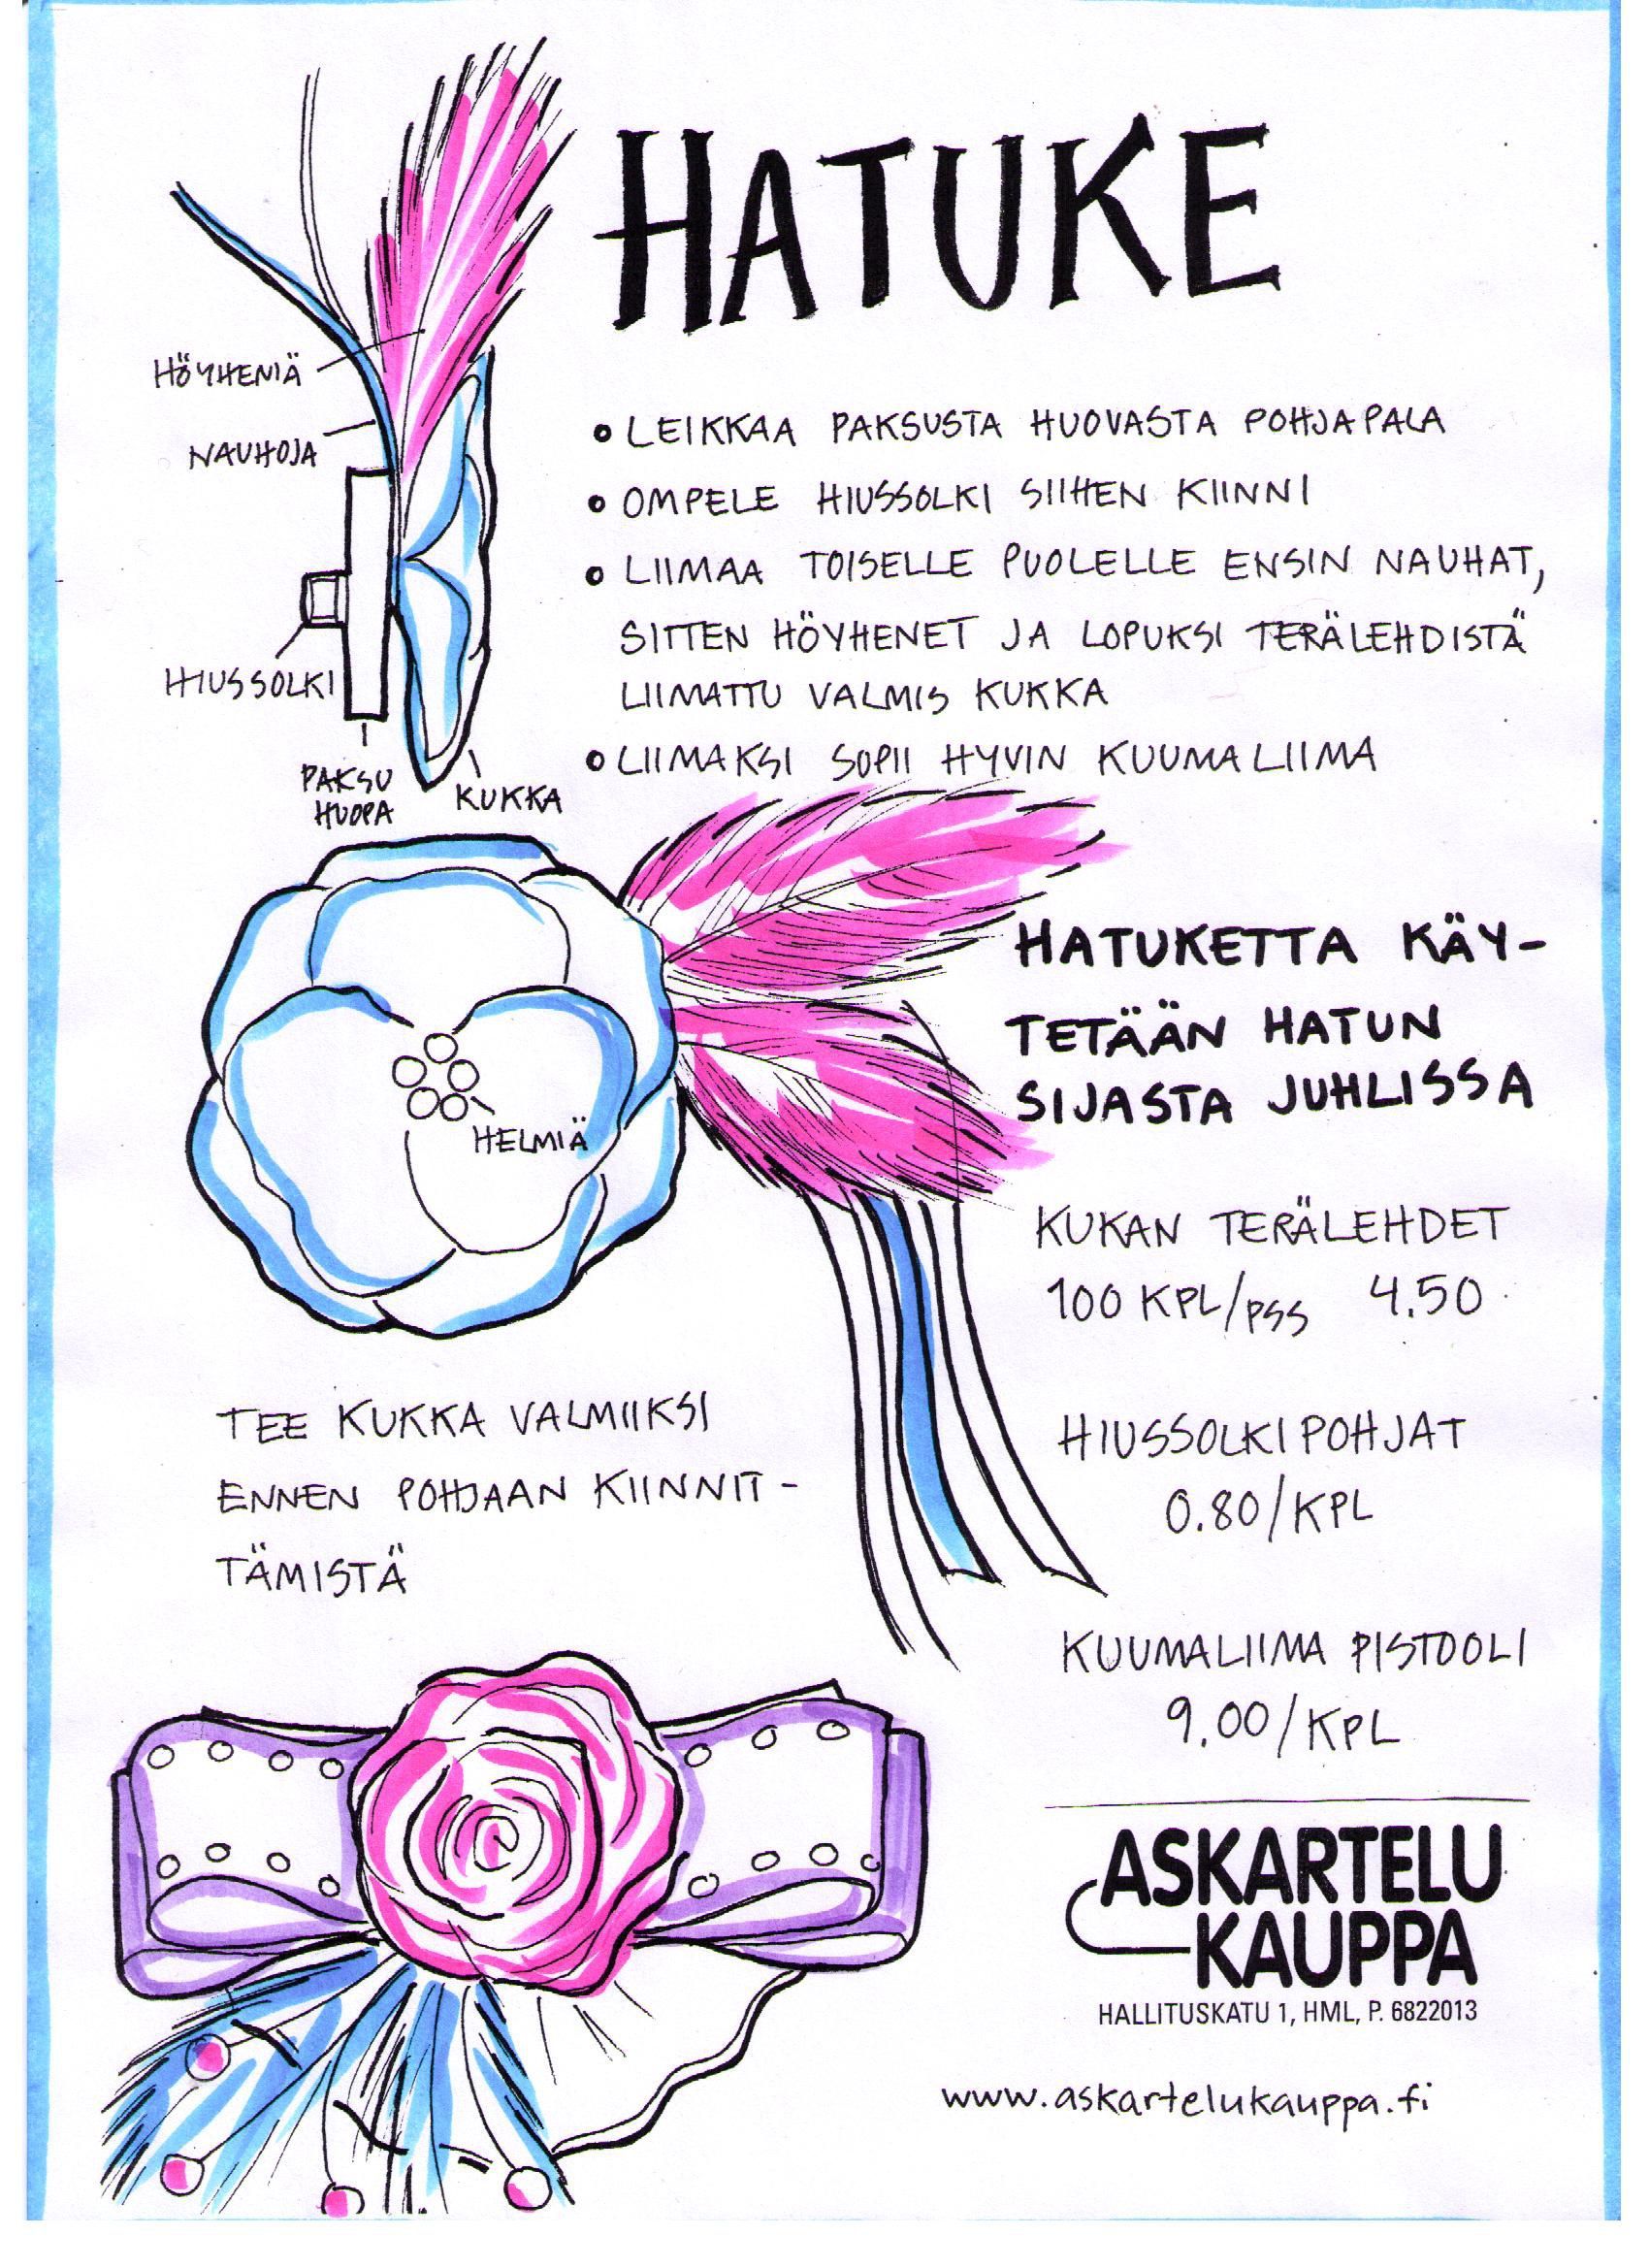 HATUKE
HÖYHENIÄ
NAUHOJA
HIUSSOLKI
PAKSU
HUOPA
KUKKA
• LEIKKAA PAKSUSTA HUOVASTA POHJAPALA
• OMPELE HIUSSOLKI SIIHEN KIINNI
• LIIMAA TOISELLE PUOLELLE ENSIN NAUHAT,
SITTEN HÖYHENET JA LOPUKSI TERÄLEHDISTÄ
LIIMATTU VALMIS KUKKA
• LIIMAKSI SOPII HYVIN KUUMALIIMA
HELMIÄ
HATUKETTA KÄY-
TETÄÄN HATUN
SIJASTA JUHLISSA
KUKAN TERÄLEHDET
100 KPL/PSS 4.50
TEE KUKKA VALMIIKSI
ENNEN POHJAAN KIINNIT-
TÄMISTÄ
HIUSSOLKIPOHJAT
0.80/KPL
KUUMALIIMA PISTOOLI
9.00/KPL
ASKARTELU
KAUPPA
HALLITUSKATU 1, HML, P. 6822013
www.askartelukauppa.fi